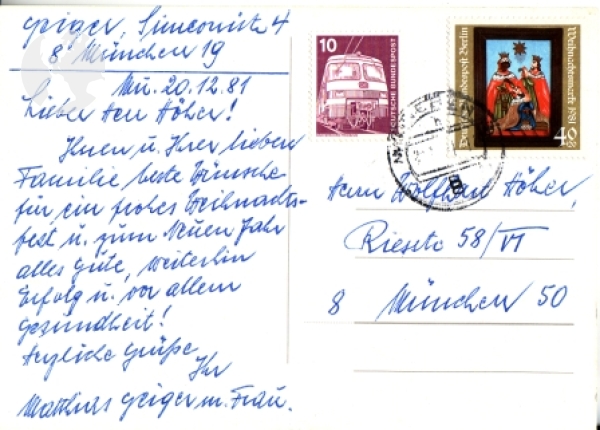 Geiger, Simeonistr. 4
8 München 19
Mü. 20.12.81
Lieber Herr Höher!
Ihnen u. Ihrer lieben
Familie beste Wünsche
für ein frohes Weihnachts-
fest u. zum Neuen Jahr
alles Gute, weiterhin
Erfolg u. vor allem
Gesundheit!
Herzliche Grüße
Ihr
Matthias Geiger m. Frau.
10
DEUTSCHE BUNDESPOST
Deutsche Bundespost Berlin
Weihnachtsmarke 1981
40
+20
Herrn Wolfhart Höher,
58/VI
8 München 50